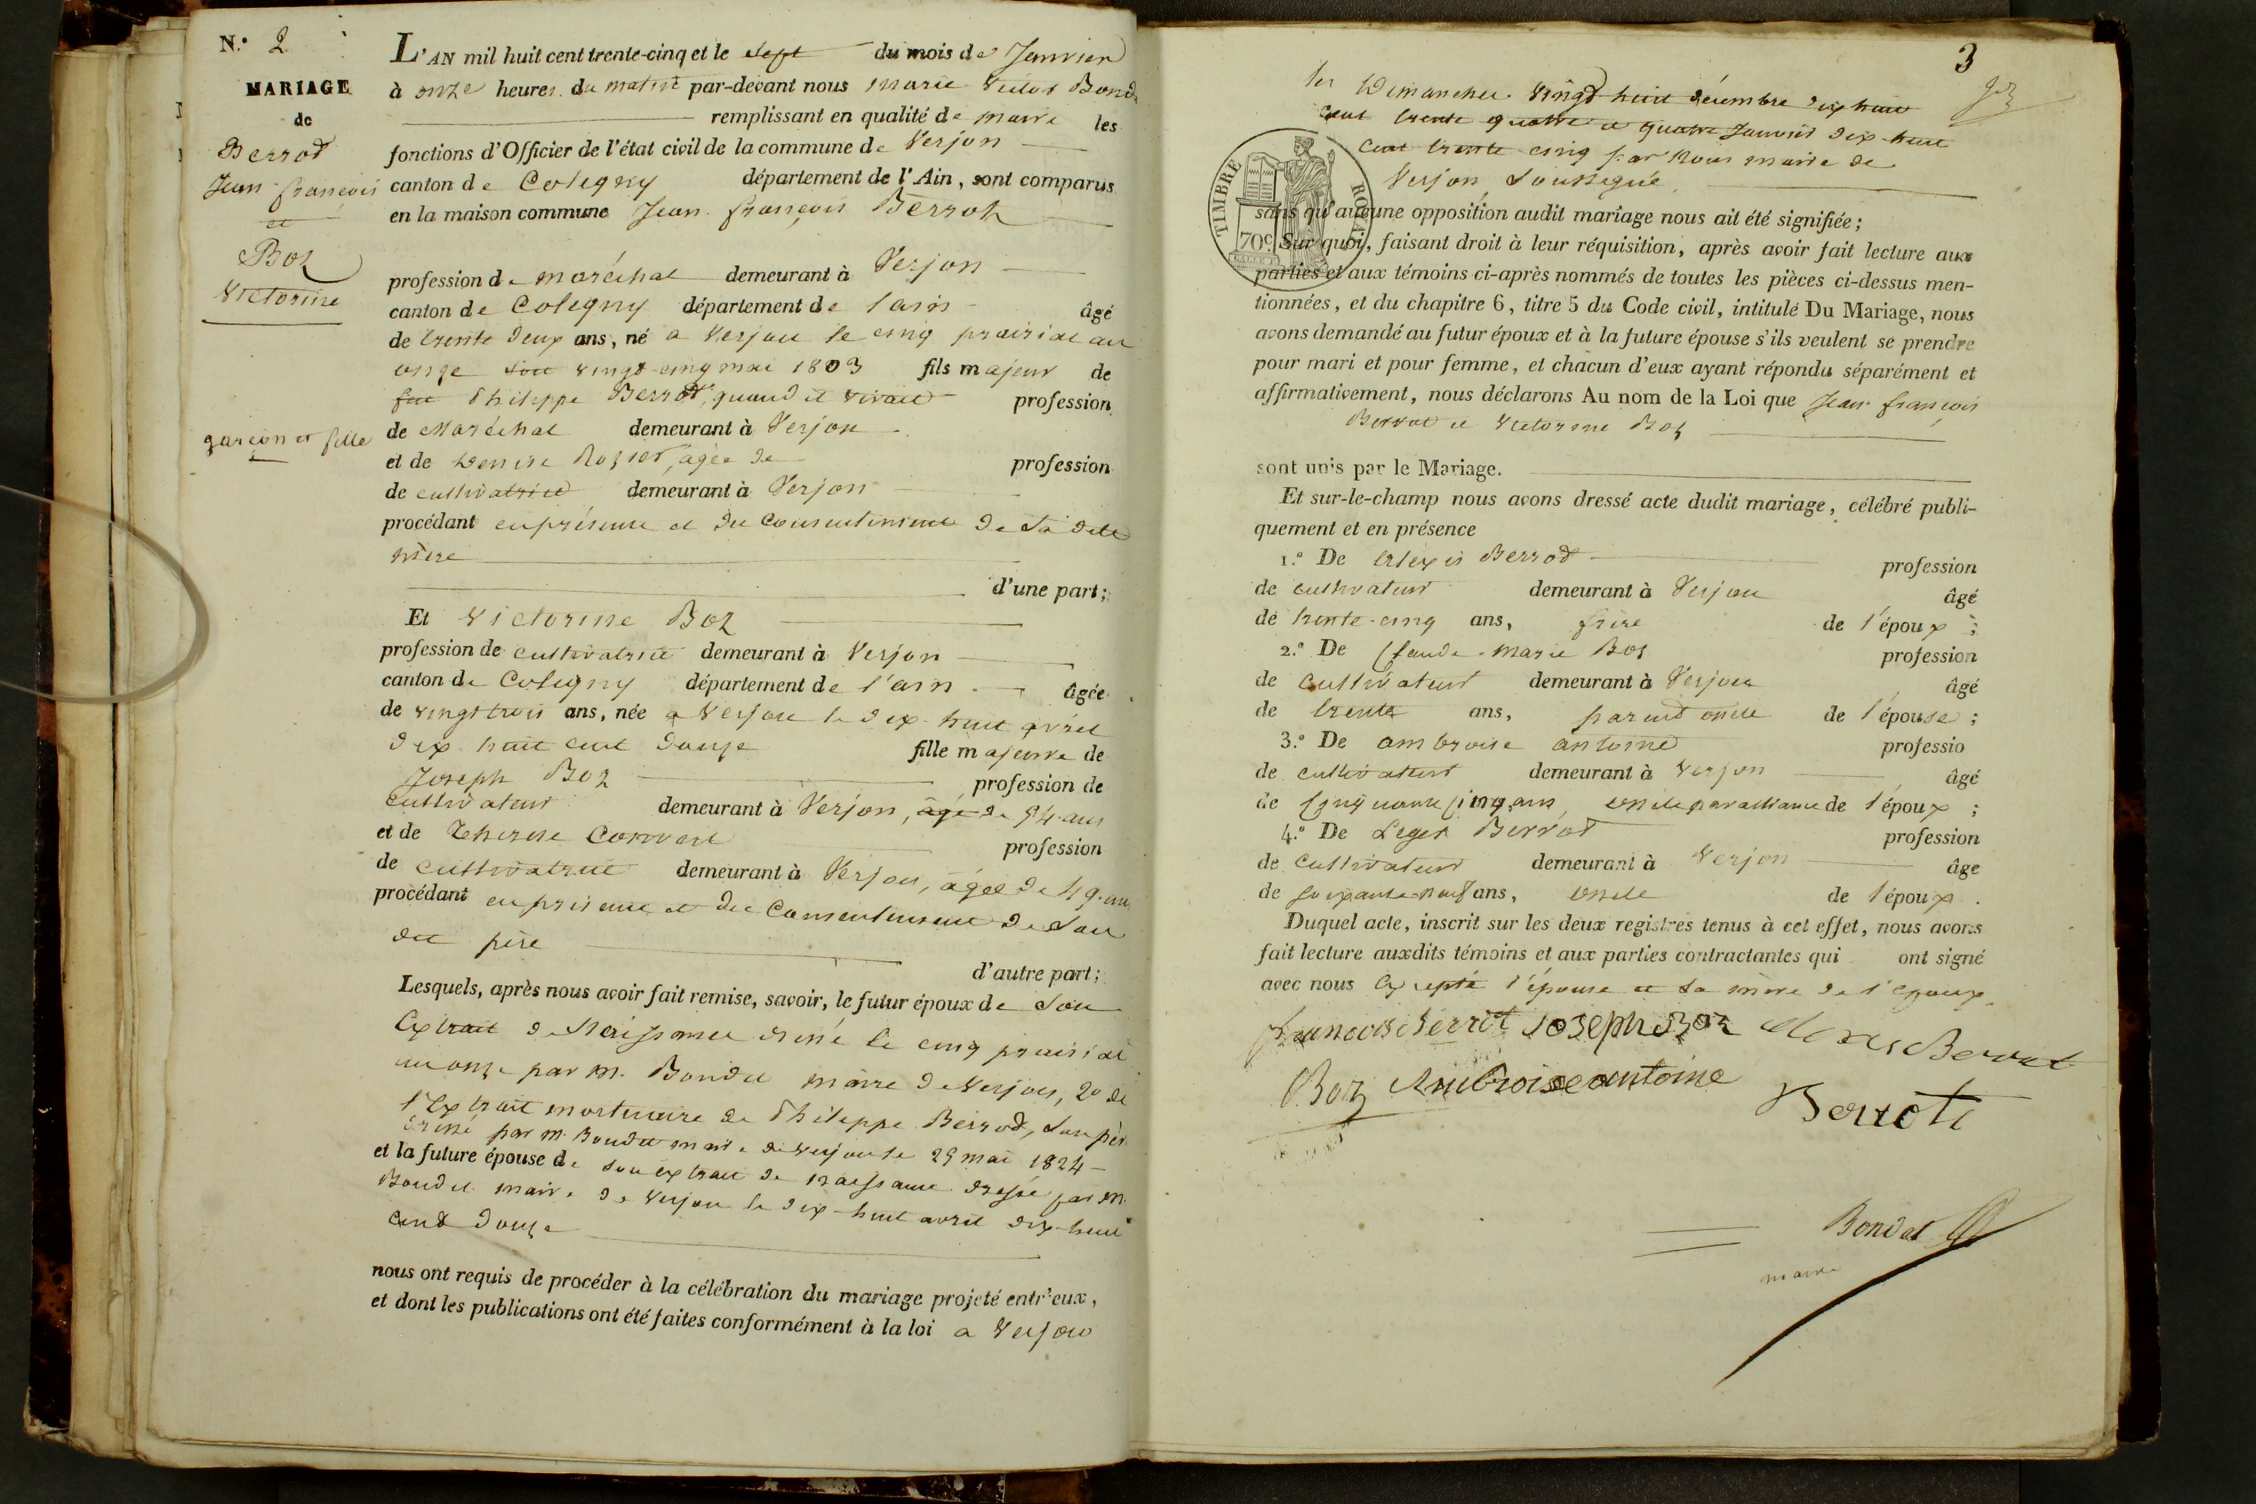 N.º 2
MARIAGE
de
Berrod
Jean françois
et
Boz
Victorine
garçon et fille
L'AN mil huit cent trente-cinq et le sept du mois de Janvier
à onze heures du matin par-devant nous marie Victor Bondet
remplissant en qualité de maire les
fonctions d'Officier de l'état civil de la commune de Verjon
canton de Coligny département de l'Ain, sont comparus
en la maison commune Jean françois Berrod
profession de maréchal demeurant à Verjon
canton de Coligny département de l'ain âgé
de trente deux ans, né a Verjon le cinq prairial an
onze soit vingt cinq mai 1803 fils majeur de
feu Philippe Berrod, quand il vivait profession
de Maréchal demeurant à Verjon
et de Denise Rozier, agée de profession
de cultivatrice demeurant à Verjon
procédant en présence et du Consentement de sa dite
mère
d'une part;
Et Victorine Boz
profession de cultivatrice demeurant à Verjon
canton de Coligny département de l'ain âgée
de vingt trois ans, née a Verjon le dix huit avril
dix huit cent douze fille majeure de
Joseph Boz profession de
cultivateur demeurant à Verjon, âgé de 54 ans
et de Therese Convert profession
de cultivatrice demeurant à Verjon, âgée de 49 ans
procédant en présence et du Consentement de Son
dit père
d'autre part;
Lesquels, après nous avoir fait remise, savoir, le futur époux de Son
Extrait de Naissance dressé le cinq prairial
an onze par M. Bondet maire de Verjon, 2º de
l'Extrait mortuaire de Philippe Berrod, son père
dressé par M. Bondet maire de Verjon le 29 mai 1824
et la future épouse de son extrait de naissance dressé par M.
Bondet maire de Verjon le dix-huit avril dix-huit
cent douze
nous ont requis de procéder à la célébration du mariage projeté entr'eux,
et dont les publications ont été faites conformément à la loi a Verjon
3
les Dimanches vingt huit décembre dix huit
cent trente quatre et quatre Janvier dix huit
Cent trente cinq par Nous maire de
Verjon Soussigné
TIMBRE ROYAL
70c
sans qu'aucune opposition audit mariage nous ait été signifiée;
Sur quoi, faisant droit à leur réquisition, après avoir fait lecture aux
parties et aux témoins ci-après nommés de toutes les pièces ci-dessus men-
tionnées, et du chapitre 6, titre 5 du Code civil, intitulé Du Mariage, nous
avons demandé au futur époux et à la future épouse s'ils veulent se prendre
pour mari et pour femme, et chacun d'eux ayant répondu séparément et
affirmativement, nous déclarons Au nom de la Loi que Jean françois
Berrod et Victorine Boz
sont unis par le Mariage.
Et sur-le-champ nous avons dressé acte dudit mariage, célébré publi-
quement et en présence
1.º De Alexis Berrod profession
de cultivateur demeurant à Verjon âgé
de trente-cinq ans, frère de l'époux;
2.º De Claude-Marie Boz profession
de Cultivateur demeurant à Verjon âgé
de trente ans, parent oncle de l'épouse;
3.º De ambroise antoine professio
de cultivateur demeurant à Verjon âgé
de Cinquante Cinq ans, oncle par alliance de l'époux;
4.º De Leger Berrod profession
de Cultivateur demeurant à Verjon âge
de soixante neuf ans, oncle de l'époux.
Duquel acte, inscrit sur les deux registres tenus à cet effet, nous avons
fait lecture auxdits témoins et aux parties contractantes qui ont signé
avec nous Excepté l'épouse et la mère de l'époux.
francois berrot Joseph Boz Alexis Berrod
Boz Ambroise antoine
Berrote
Bondet
maire